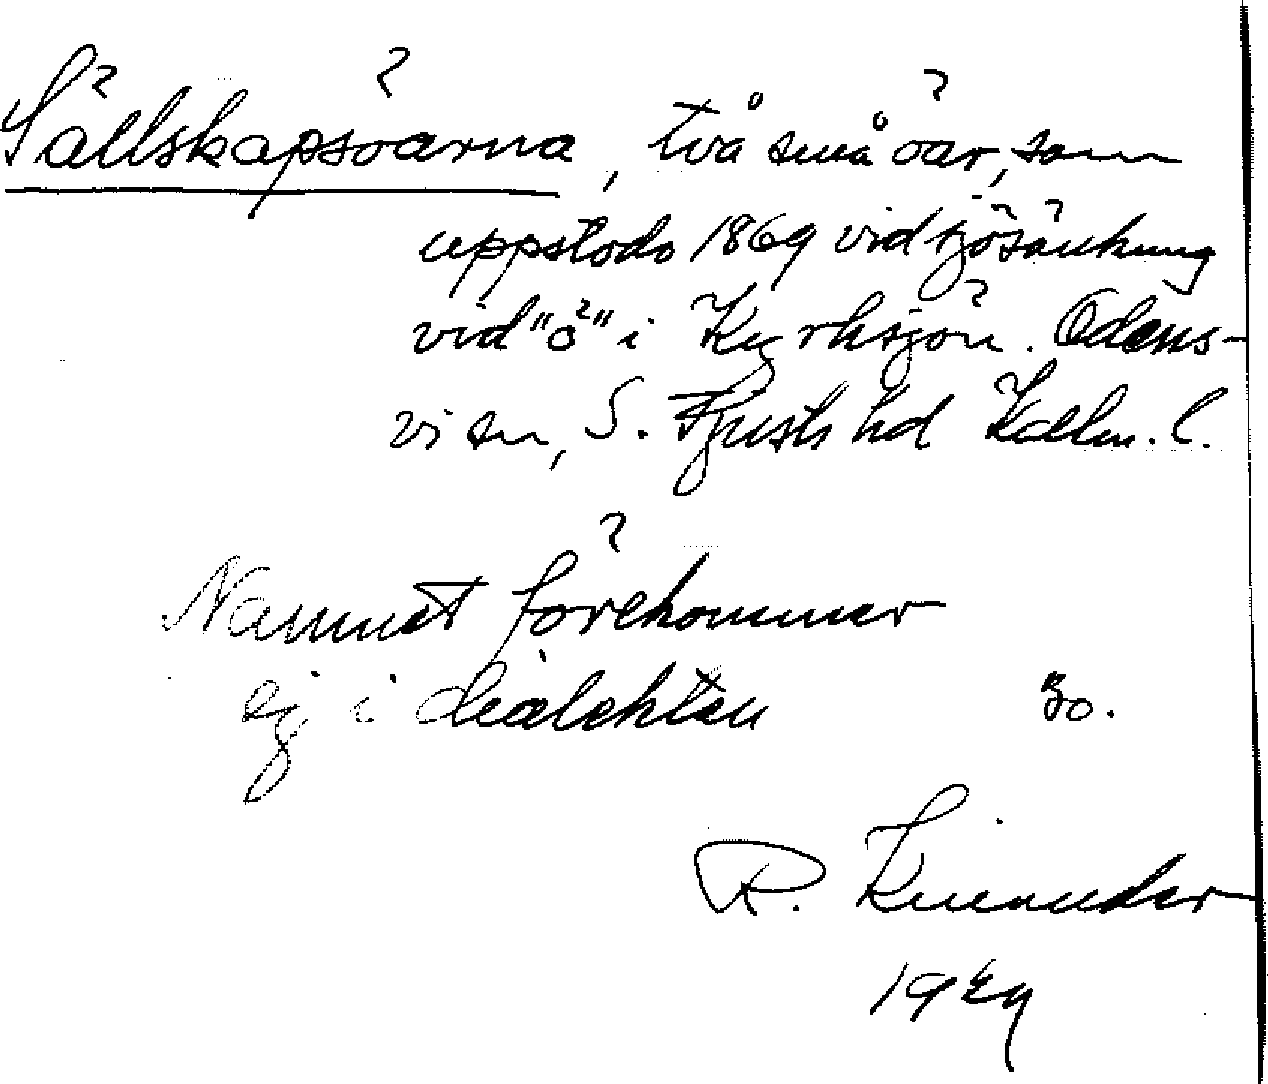 Sällskapsöarna, två små öar, som
uppstodo 1869 vid sjösänkning
vid "ö" i Kyrksjön. Odens-
vi sn, S. Tjusts hd Kalm. l.
Namnet förekommer
ej i dialekten 30.
R.
1949